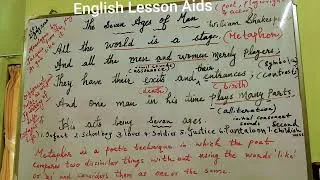 English Lesson Aids
The Seven Ages of Man
William Shakespeare
All the world is a stage, (Metaphor)
And all the men and women merely players.
(assonance)
They have their exits and entrances, (contrast)
(death) (birth)
And one man in his time plays many parts,
(alliteration)
initial consonant sounds
His acts being seven ages.
1. Infant 2. Schoolboy 3. Lover 4. Soldier 5. Justice 6. Pantaloon 7. Second childish
Metaphor is a poetic technique in which the poet
compares two dissimilar things without using the words 'like'
or as and considers them as one or the same.